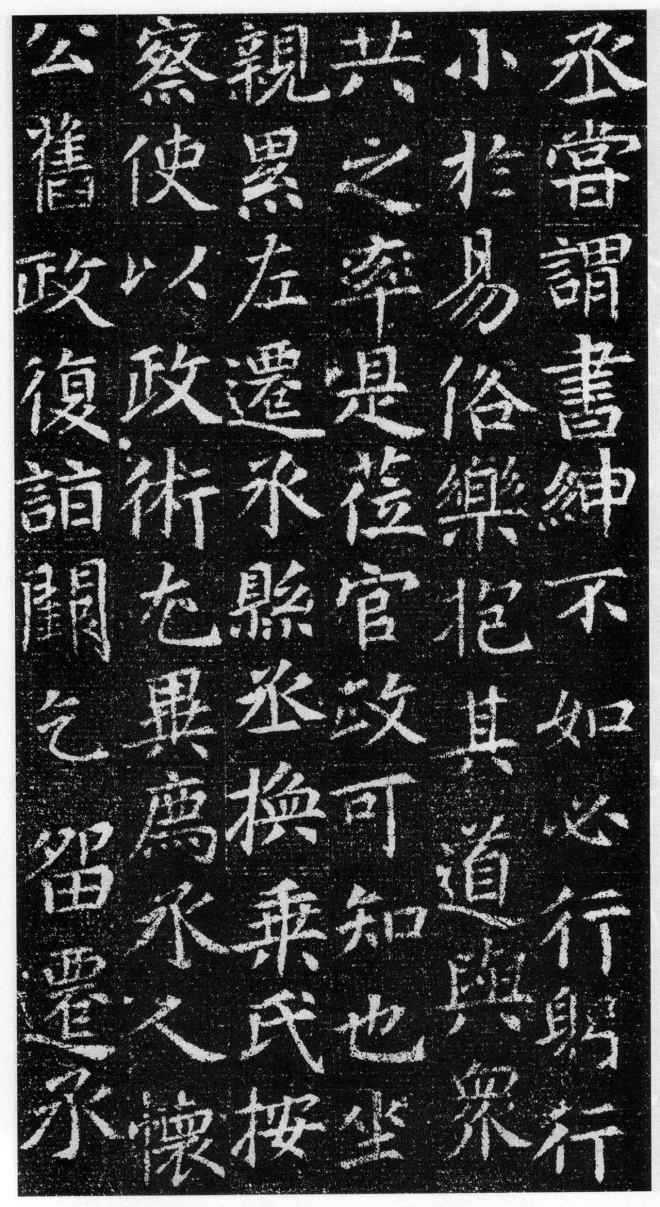 丞嘗謂書紳不如必行躬行
小於易俗樂抱其道與眾
共之率是莅官政可知也坐
親累左遷氶縣丞換乗氏按
察使以政術尤異薦氶人懷
公舊政復詣闕乞留遷氶